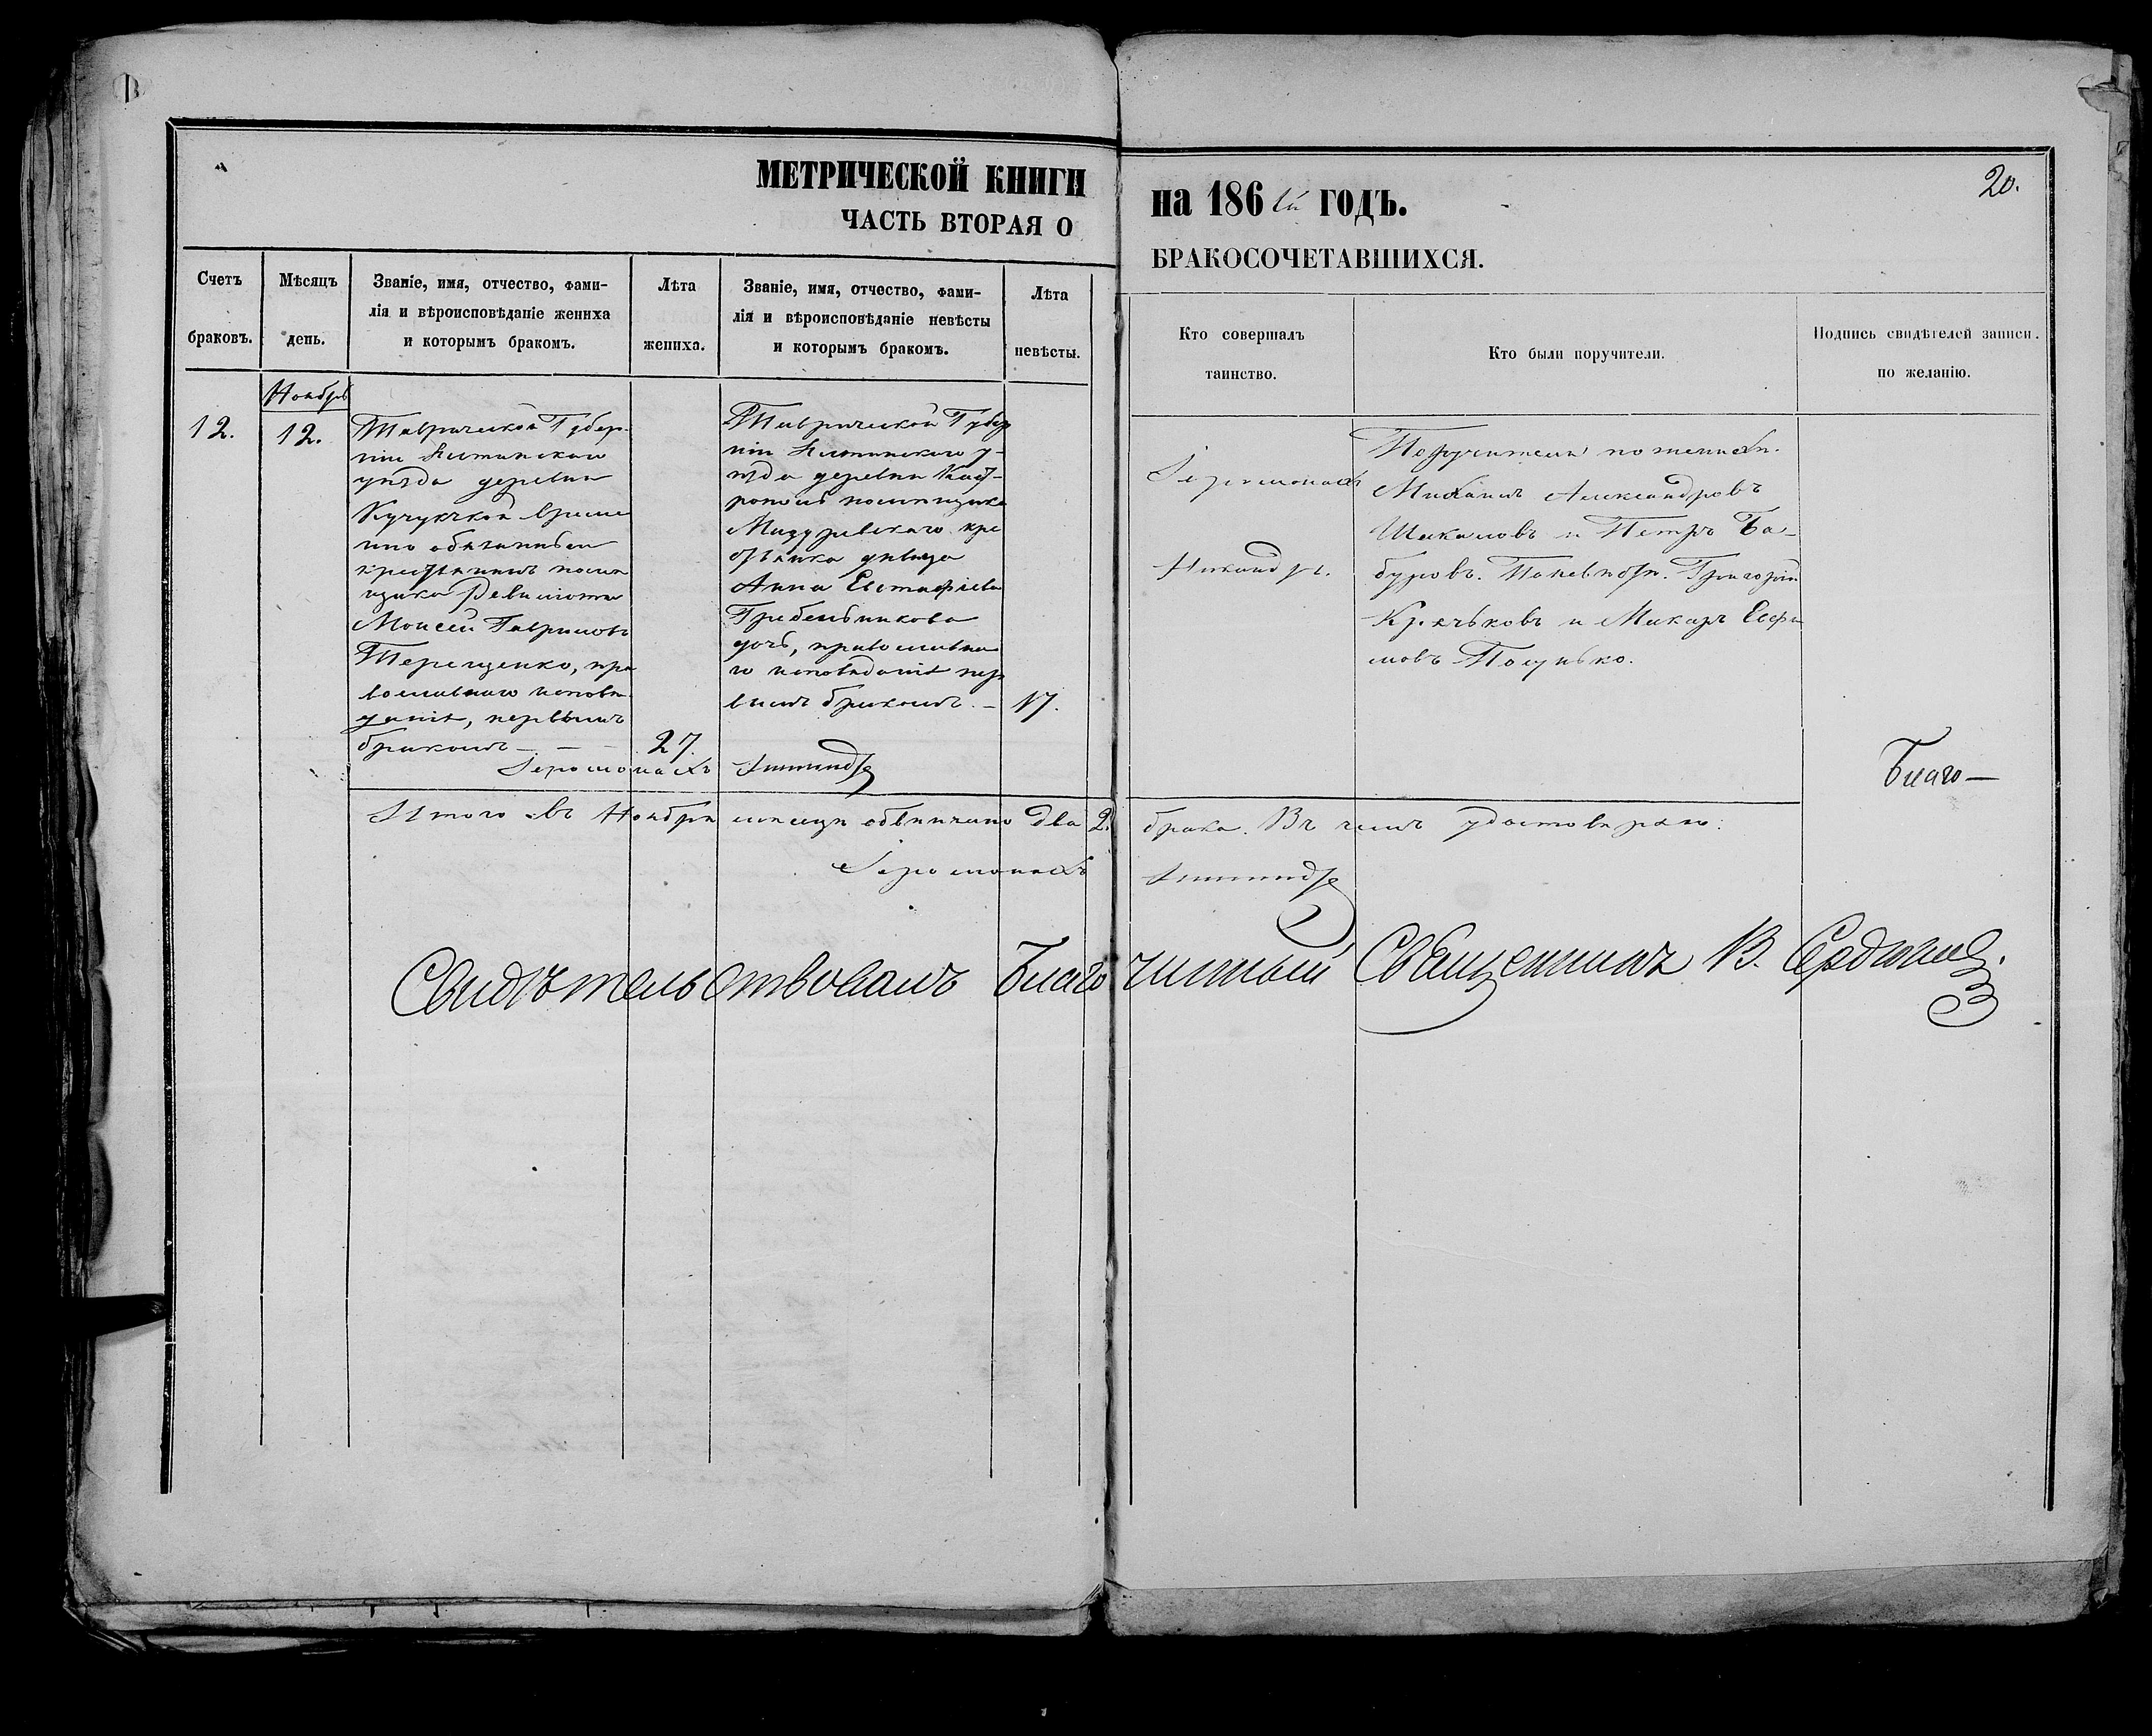 МЕТРИЧЕСКОЙ КНИГИ на 186 й ГОДЪ.
20.
ЧАСТЬ ВТОРАЯ О БРАКОСОЧЕТАВШИХСЯ.
Счетъ браковъ.
Мѣсяцъ день.
Званіе, имя, отчество, фами-
лія и вѣроисповѣданіе жениха
и которымъ бракомъ.
Лѣта жениха.
Званіе, имя, отчество, фами-
лія и вѣроисповѣданіе невѣсты
и которымъ бракомъ.
Лѣта невѣсты.
Кто совершалъ
таинство.
Кто были поручители.
Подпись свидѣтелей записи.
по желанію.
Ноябрь
12.
12.
Таврической Губер-
ніи Ялтинскаго
уѣзда деревни
Кучуккой време
нно обязанный
крестьянинъ помѣ
щика Ревилиоти
Моисей Гавриловъ
Терещенко, пра
вославнаго исповѣ
данія, первымъ
бракомъ – – –
27.
Таврической Губер
ніи Ялтинскаго у-
ѣзда деревни Каст-
рополь помѣщика
кре
стьянка дѣвица
Анна Евстафіева
Гребельникова
дочь, православна
го исповѣданія пер
вымъ бракомъ. –
17.
Іеромонахъ
Никандръ.
Поручители по женихѣ.
Михаилъ Александровъ
Шакаловъ и Петръ Ба-
буровъ. По невѣстѣ. Григорій
и Макаръ Ефи
мовъ
Іеромонахъ Никандръ
Благо–
Итого въ Ноябрѣ мѣсяцѣ обвѣнчано два 2. брака. Въ чемъ удостовѣряю:
Іеромонахъ Никандръ
Свидѣтельствовалъ Благочинный Священникъ В.